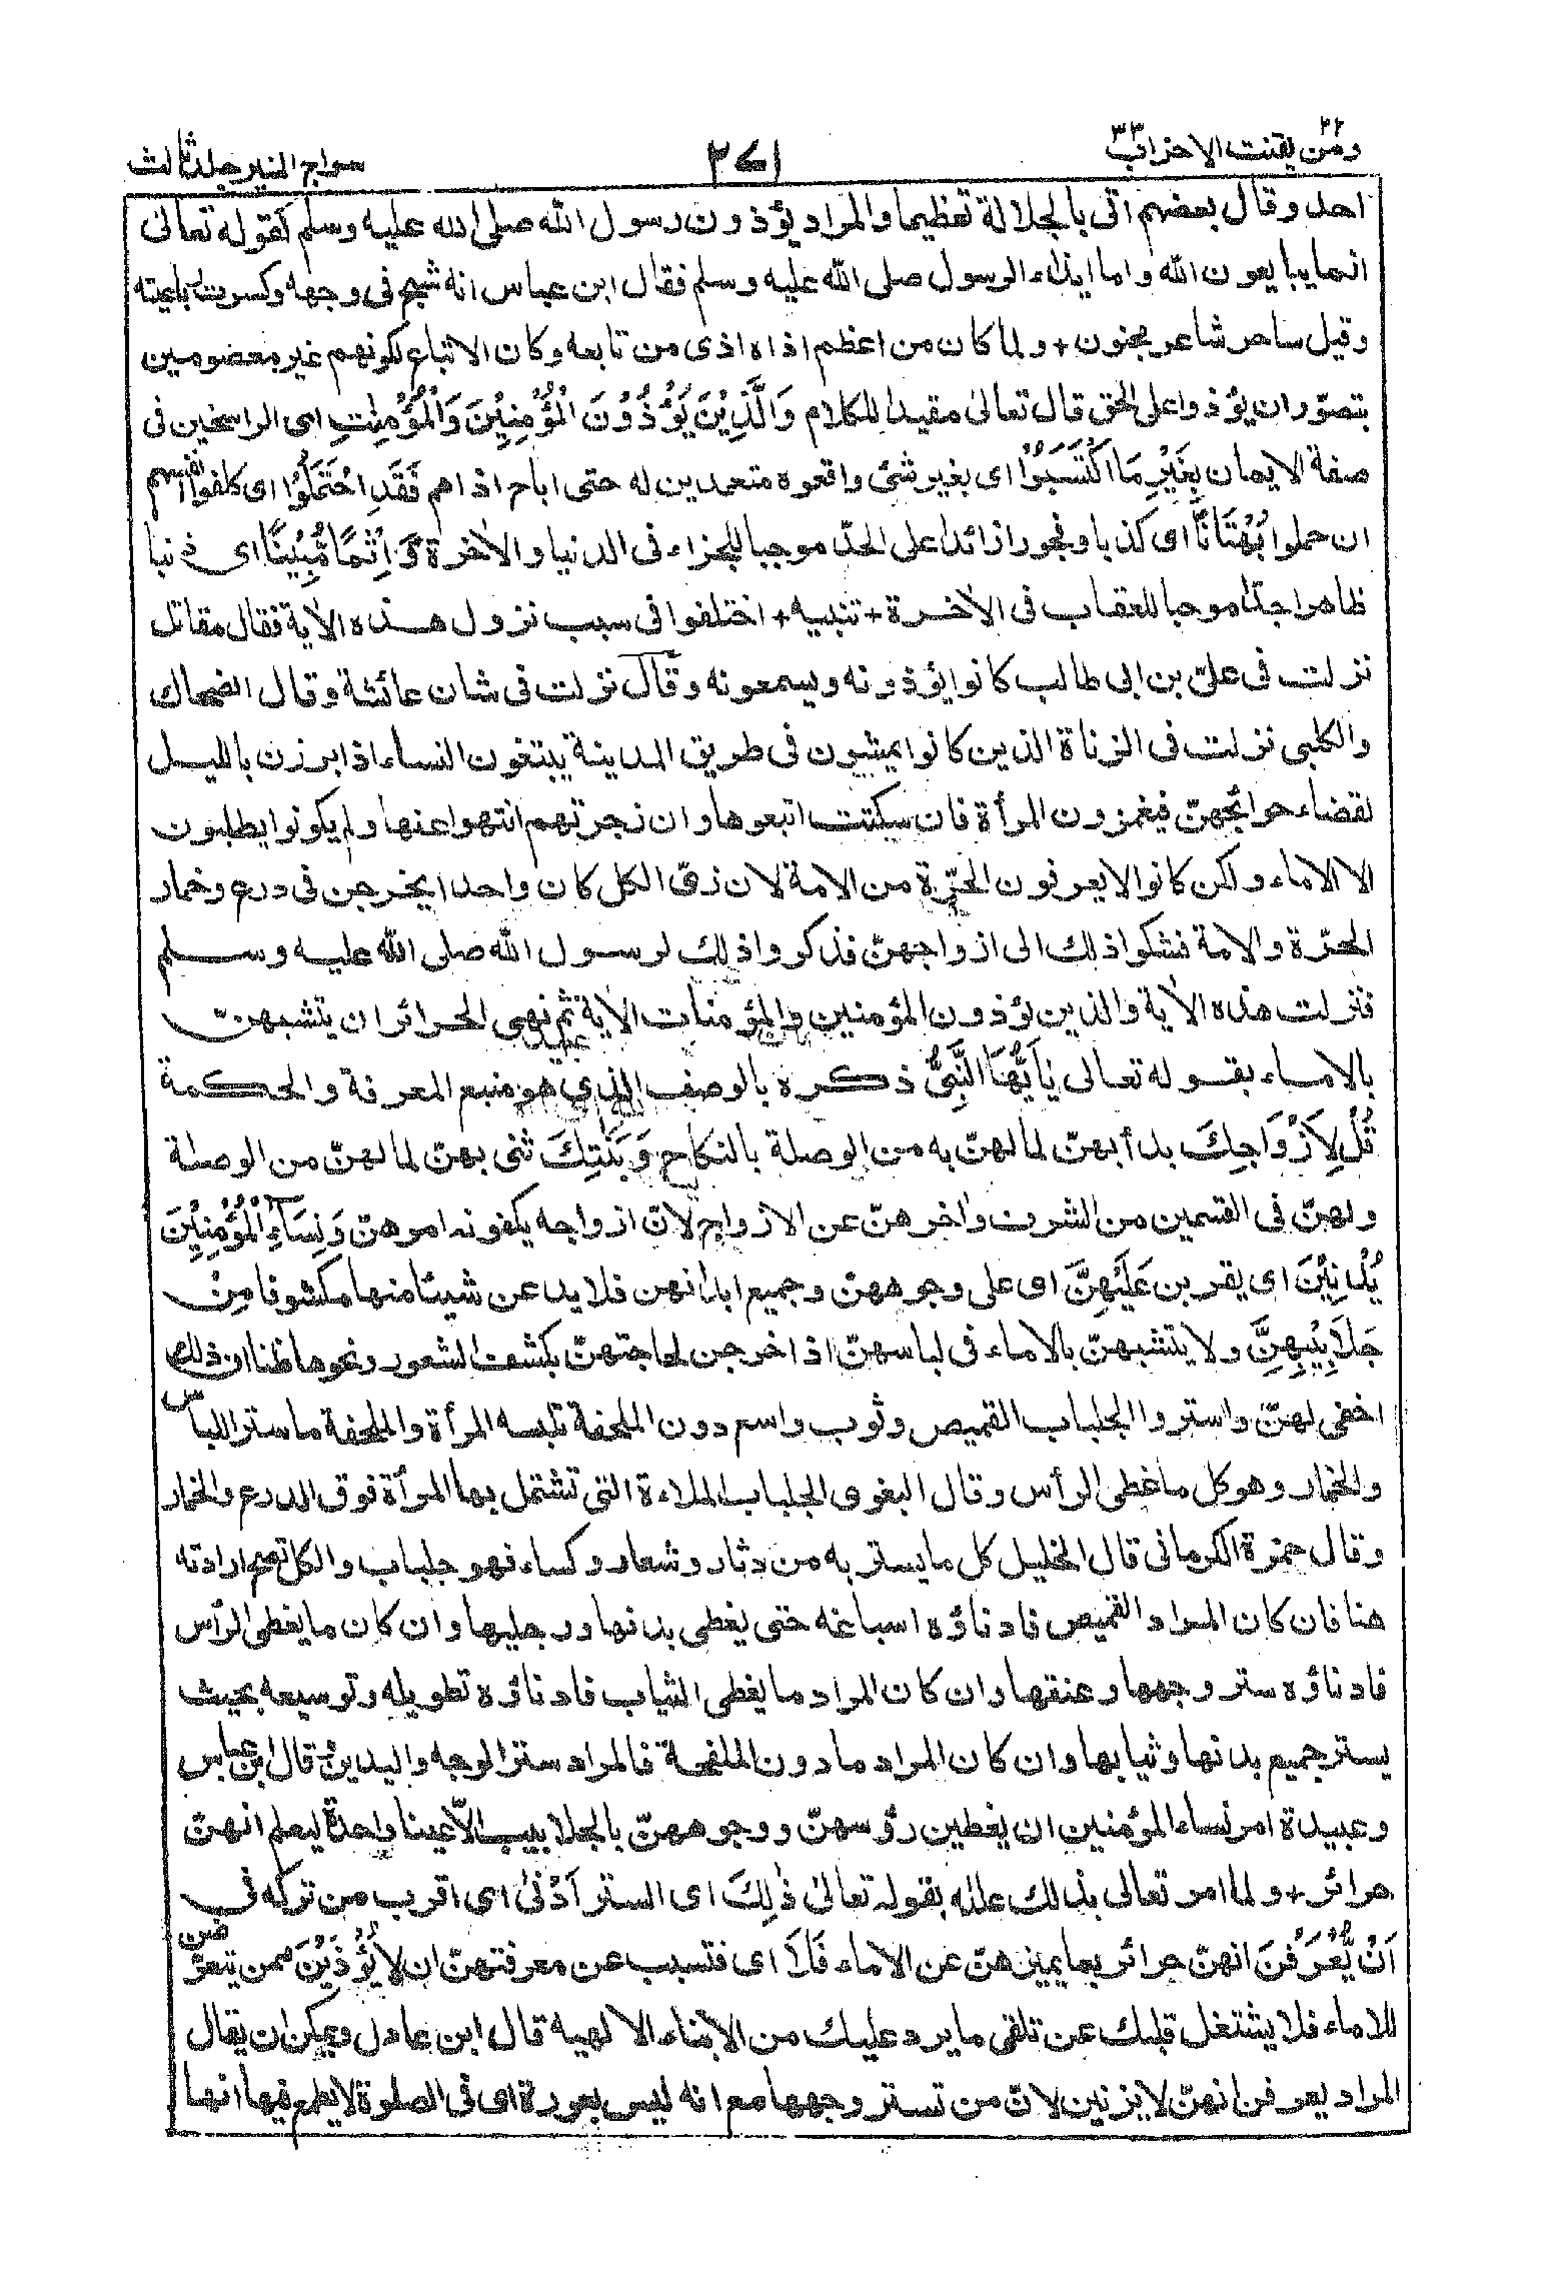 ومن يقنت ٢٢ الاحزاب ٣٣
٢٧١
سراج المنير جلد ثالث
احد وقال بعضهم اتى بالجلالة تعظيما والمراد يؤذون رسول الله صلى الله عليه وسلم كقوله تعالى
انما يبايعون الله واما ايذاء الرسول صلى الله عليه وسلم فقال ابن عباس انه شج فى وجهه وكسرت رباعيته
وقيل ساحر شاعر مجنون + ولما كان من اعظم اذاه اذى من تابعه وكان الاتباع لكونهم غير معصومين
يتصوّر ان يؤذوا على الحق قال تعالىٰ مقيدا للكلام وَالَّذِيْنَ يُؤْذُوْنَ الْمُؤْمِنِيْنَ وَالْمُؤْمِنٰتِ اى الراسخين فى
صفة الايمان بِغَيْرِ مَا اكْتَسَبُوْا اى بغير شئ واقعوه متعمدين له حتى اباح اذاهم فَقَدِ احْتَمَلُوْا اى كلفوا انفسهم
ان حملوا بُهْتَانًا اى كذبا وفجورا زائدا على الحدّ موجبا للجزاء فى الدنيا والاٰخرة وَّ اِثْمًا مُّبِيْنًا اى ذنبا
ظاهرا جدّا موجبا للعقاب فى الاٰخرة + تنبيه + اختلفوا فى سبب نزول هذه الاٰية فقال مقاتل
نزلت فى علىّ بن ابى طالب كانوا يؤذونه ويسمعونه وقال نزلت فى شان عائشة وقال الضحاك
والكلبى نزلت فى الزناة الذين كانوا يمشون فى طريق المدينة يبتغون النساء اذا برزن بالليل
لقضاء حوائجهنّ فيغمزون المرأة فان سكتت اتبعوها وان زجرتهم انتهوا عنها ولم يكونوا يطلبون
الا الاماء ولكن كانوا لا يعرفون الحرّة من الامة لان زى الكل كان واحدا يخرجن فى درع وخمار
الحرّة والامة فشكوا ذلك الى ازواجهنّ فذكروا ذلك لرسول الله صلى الله عليه وسلم
فنزلت هذه الاٰية والذين يؤذون المؤمنين والمؤمنات الاٰية ثم نهى الحرائر ان يتشبهنّ
بالاماء بقوله تعالى يٰاَيُّهَا النَّبِىُّ ذكره بالوصف الذي هو منبع المعرفة والحكمة
قُلْ لِاَزْوَاجِكَ بدأ بهنّ لما لهنّ به من الوصلة بالنكاح وَبَنٰتِكَ ثنى بهنّ لما لهنّ من الوصلة
ولهنّ فى القسمين من الشرف واخرهنّ عن الازواج لانّ ازواجه يكفونه امرهنّ وَنِسَآءِ الْمُؤْمِنِيْنَ
يُدْنِيْنَ اى يقربن عَلَيْهِنَّ اى على وجوههنّ وجميع ابدانهن فلا يدعن شيئا منها مكشوفا مِنْ
جَلَابِيْبِهِنَّ ولا يتشبهنّ بالاماء فى لباسهنّ اذا خرجن لحاجتهنّ بكشف الشعور ونحوها ظنا ان ذلك
اخفى لهنّ واستر والجلباب القميص وثوب واسع دون الملحفة تلبسه المرأة والملحفة ما ستر اللباس
والخمار وهو كل ما غطى الرأس وقال البغوى الجلباب الملاءة التى تشتمل بها المرأة فوق الدرع والخمار
وقال حمزة الكرمانى قال الخليل كل ما يستر به من دثار وشعار وكساء فهو جلباب والكل تصح ارادته
هنا فان كان المراد القميص فادناؤه اسباغه حتى يغطى بدنها ورجليها وان كان ما يغطى الرأس
فادناؤه ستر وجهها وعنقها وان كان المراد ما يغطى الثياب فادناؤه تطويله وتوسيعه بحيث
يستر جميع بدنها وثيابها وان كان المراد ما دون الملفحة فالمراد ستر الوجه واليدين قال ابن عباس
وعبيدة امر نساء المؤمنين ان يغطين رؤسهنّ ووجوههنّ بالجلابيب الّا عينا واحدة ليعلم انهنّ
حرائر + ولما امر تعالى بذلك علله بقوله تعالىٰ ذٰلِكَ اى الستر اَدْنٰى اى اقرب من تركه فى
اَنْ يُّعْرَفْنَ انهنّ حرائر بما يميزهنّ عن الاماء فَلَا اى فتسبب عن معرفتهنّ ان لا يُؤْذَيْنَ ممن يتعرّض
للاماء فلا يشتغل قلبك عن تلقى ما يرد عليك من الانباء الالهية قال ابن عادل ويمكن ان يقال
المراد يعرفن انهنّ لا يزنين لانّ من تستر وجهها مع انه ليس بعورة اى فى الصلوة لا يطمع فيها انها